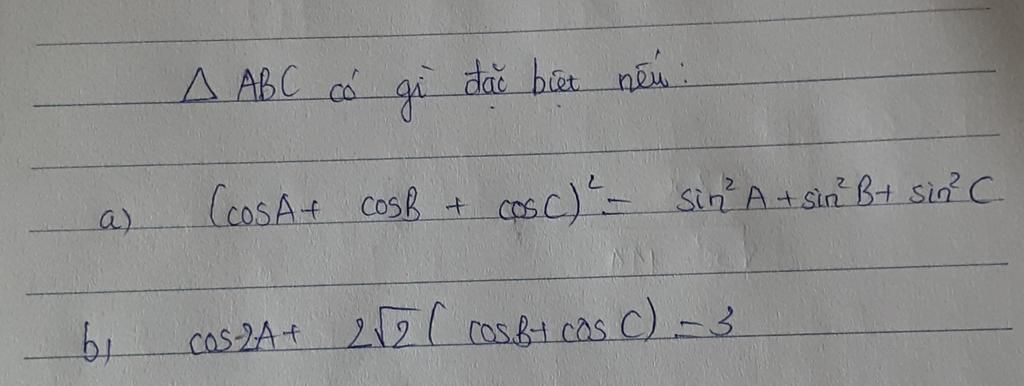 Δ ABC có gì đặc biệt nếu:
a) (cosA + cosB + cosC)² = sin² A + sin² B + sin² C
b) cos2A + 2√2 ( cosB + cos C) = 3